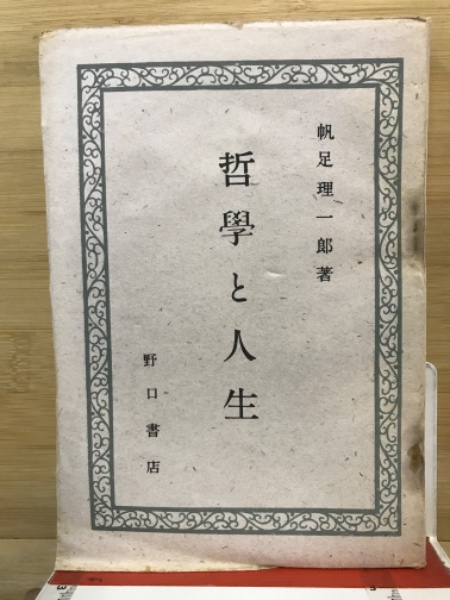 帆足理一郎著
哲學と人生
野口書店